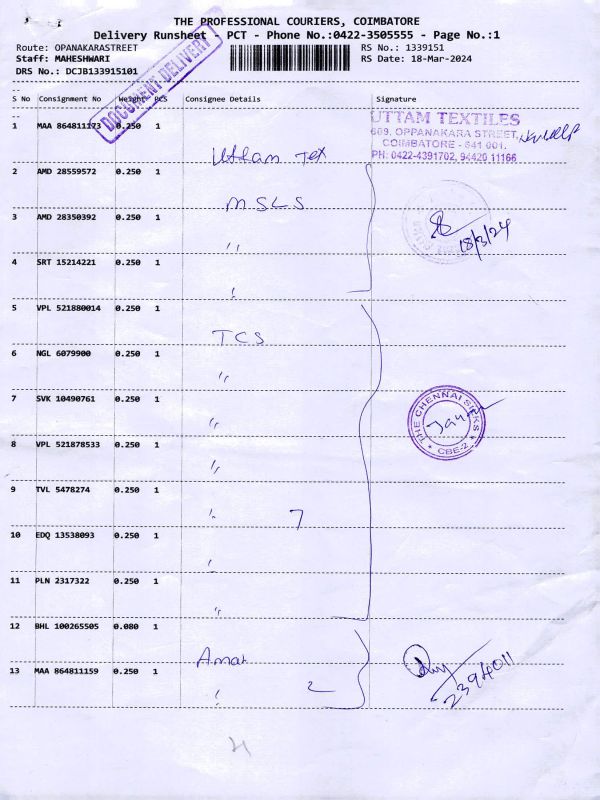 THE PROFESSIONAL COURIERS, COIMBATORE
Delivery Runsheet - PCT - Phone No.:0422-3505555 - Page No.:1
Route: OPANAKARASTREET RS No.: 1339151
Staff: MAHESHWARI RS Date: 18-Mar-2024
DRS No.: DCJB133915101
DOCUMENT DELIVERY
S No Consignment No Weight PCS Consignee Details Signature
1 MAA 864811173 0.250 1 Uttam Tex
UTTAM TEXTILES
669, OPPANAKARA STREET,
COIMBATORE - 641 001.
PH: 0422-4391702, 94420 11166
2 AMD 28559572 0.250 1 MSCS
3 AMD 28350392 0.250 1 ,,
18/3/24
4 SRT 15214221 0.250 1
5 VPL 521880014 0.250 1 TCS
6 NGL 6079900 0.250 1 ,,
7 SVK 10490761 0.250 1 ,,
THE CHENNAI SILKS
CBE-2
8 VPL 521878533 0.250 1 ,,
9 TVL 5478274 0.250 1 ,, 7
10 EDQ 13538093 0.250 1
11 PLN 2317322 0.250 1 ,,
12 BHL 100265505 0.080 1 Amar
13 MAA 864811159 0.250 1 2
2394011